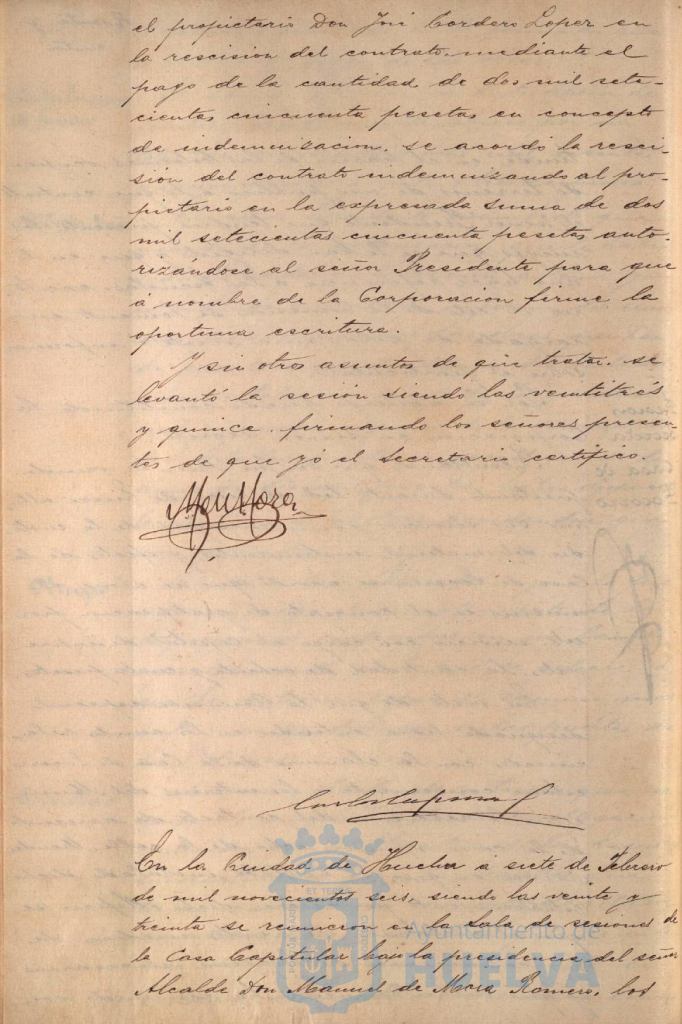 el propietario Don José Cordero Lopez en
la rescision del contrato mediante el
pago de la cantidad de dos mil sete-
cientas cincuenta pesetas en concepto
de indemnizacion. se acordó la resci-
sión del contrato indemnizando al pro-
pietario en la expresada suma de dos
mil setecientas cincuenta pesetas auto-
rizándose al señor Presidente para que
á nombre de la Corporacion firme la
oportuna escritura.
Y sin otros asuntos de que tratar. se
levantó la sesión siendo las veintitrés
y quince. firmando los señores presen-
tes de que yó el Secretario certifico.
En la Ciudad de Huelva á siete de Febrero
de mil novecientos seis, siendo las veinte y
treinta se reunieron en la Sala de sesiones de
la Casa Capitular bajo la presidencia del señor
Alcalde Don Manuel de Mora Romero, los
Ayuntamiento de
HUELVA